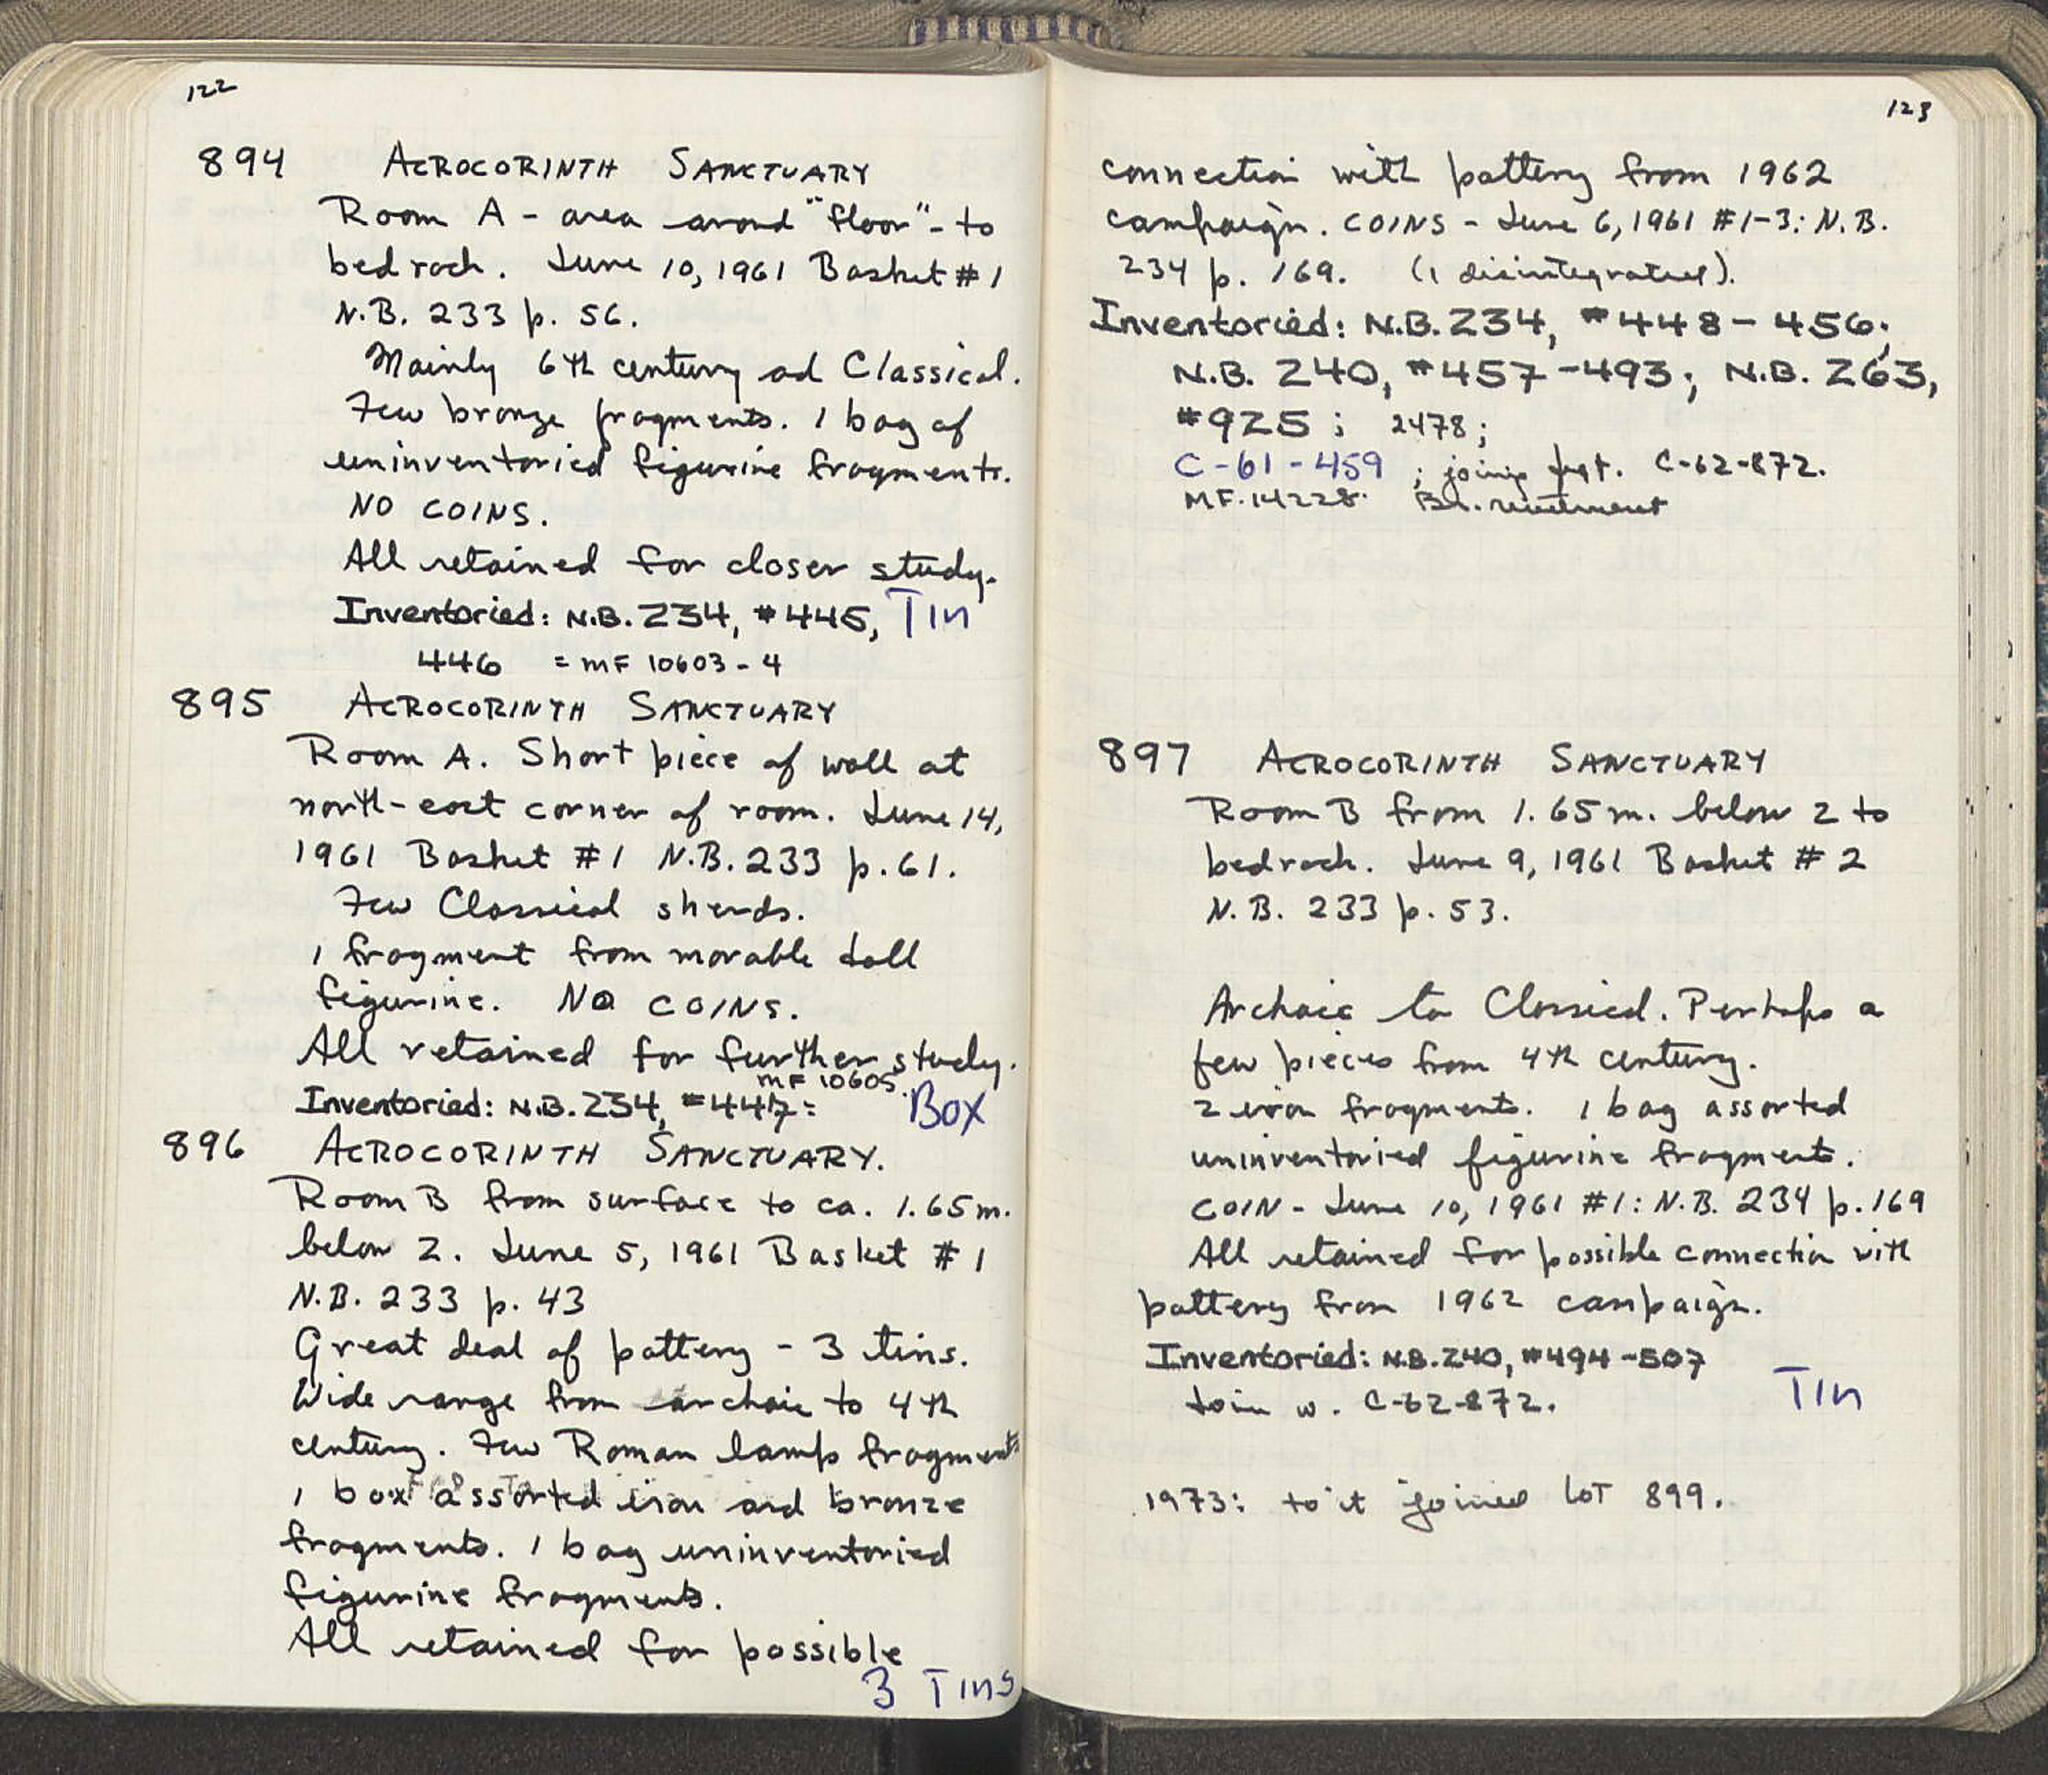 122
894 ACROCORINTH SANCTUARY
Room A - area around "floor" - to
bedrock. June 10, 1961 Basket #1
N.B. 233 p. 56.
Mainly 6th century ad Classical.
Few bronze fragments. 1 bag of
uninventoried figurine fragments.
NO COINS.
All retained for closer study.
Inventoried: N.B. 234, #445, TIN
446 = MF 10603-4
895 ACROCORINTH SANCTUARY
Room A. Short piece of wall at
north-east corner of room. June 14,
1961 Basket #1 N.B. 233 p. 61.
Few Classical sherds.
1 fragment from movable doll
figurine. NO COINS.
All retained for further study.
MF 10605.
Inventoried: N.B. 234, #447= BOX
896 ACROCORINTH SANCTUARY.
Room B from surface to ca. 1.65 m.
below 2. June 5, 1961 Basket #1
N.B. 233 p. 43
Great deal of pottery - 3 tins.
Wide range from archaic to 4th
century. Few Roman lamp fragments
1 box assorted iron and bronze
fragments. 1 bag uninventoried
figurine fragments.
All retained for possible
3 TINS
123
connection with pottery from 1962
campaign. COINS - June 6, 1961 #1-3: N.B.
234 p. 169. (1 disintegrated).
Inventoried: N.B. 234, #448-456;
N.B. 240, #457-493; N.B. 263,
#925; 2478;
C-61-459; joins C-62-872.
MF.14228.
897 ACROCORINTH SANCTUARY
Room B from 1.65 m. below 2 to
bedrock. June 9, 1961 Basket #2
N.B. 233 p. 53.
Archaic to Classical. Perhaps a
few pieces from 4th century.
2 iron fragments. 1 bag assorted
uninventoried figurine fragments.
COIN - June 10, 1961 #1: N.B. 234 p. 169
All retained for possible connection with
pottery from 1962 campaign.
Inventoried: N.B. 240, #494-507
Join w. C-62-872. TIN
1973: to it joined LOT 899.